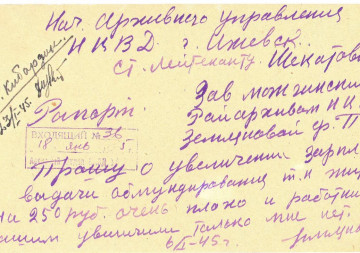 Нач. Архивного управления
НКВД г. Ижевск
ст. Лейтенанту Шкатов
Зав можгинским
Райархивом НК
Земляновой ф. П
23/I-45.
Рапорт.
ВХОДЯЩИЙ № 36
18 янв 5 г.
Прошу о увеличении зарпл
выдачи обмундирования т.к жи
на 250 руб. очень плохо и работни
увеличили только мне нет.
6/I-45 г.